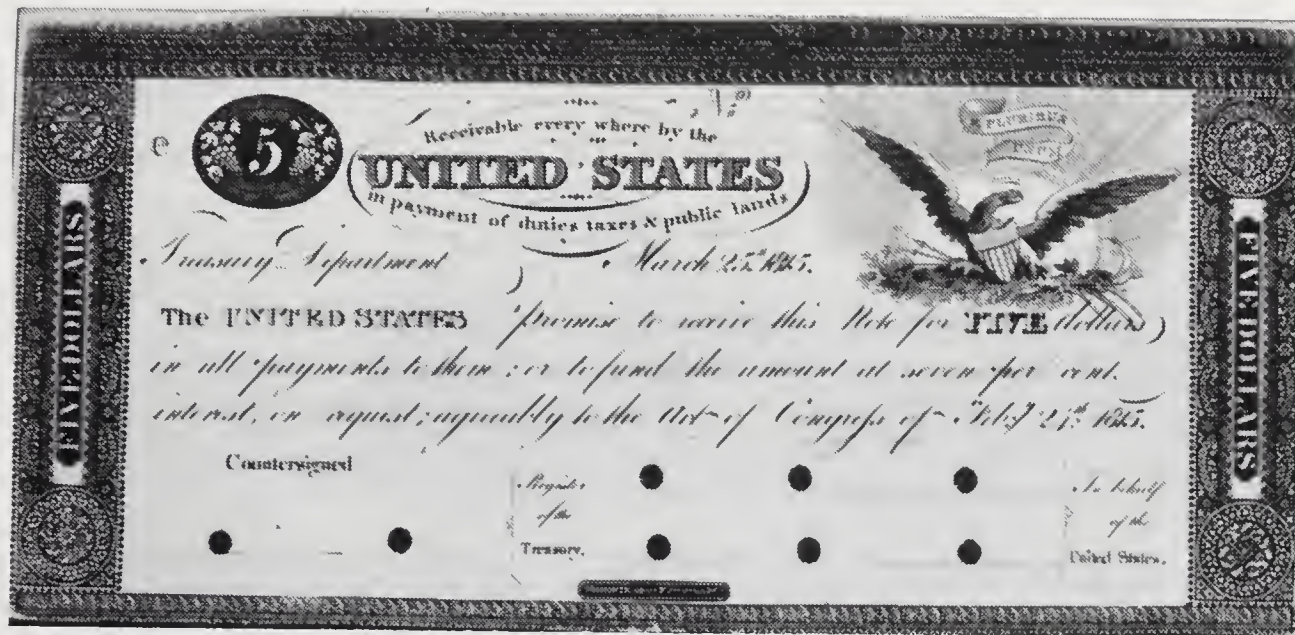 FIVE DOLLARS
e
5
No
Receivable every where by the
UNITED STATES
in payment of duties taxes & public lands
E PLURIBUS
Treasury Department March 25th 1815.
The UNITED STATES promise to receive this Note for FIVE dollars
in all payments to them; or to fund the amount at seven per cent.
interest, on request; agreeably to the Act of Congress of Feby 24th 1815.
Countersigned
Register
of the
Treasury.
In behalf
of the
United States.
FIVE DOLLARS